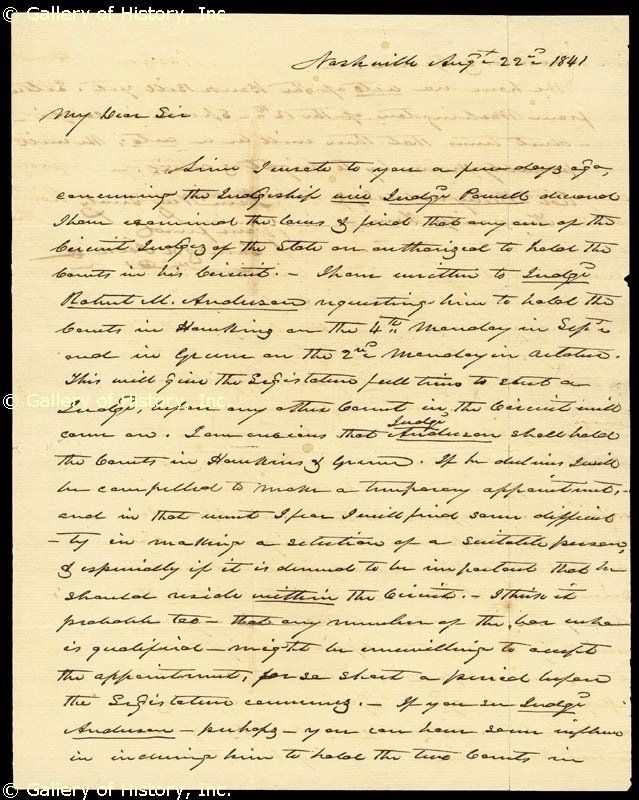 © Gallery of History, Inc.
Nashville Augt 22nd 1841
My Dear Sir
Since I wrote to you a few days ago,
concerning the Judgeship vice Judge Powell
I have examined the laws & find that any one of the
Circuit Judges of the State are authorized to hold the
Courts in his Circuit. - I have written to Judge
Robert M. Anderson requesting him to hold the
Courts in Hawkins on the 4th Monday in Septr
and in Green on the 2nd Monday in October.
This will give the Legislature full time to elect a
Judge, before any other Court in the Circuit will
© Gallery of History, Inc.
come on. I am anxious that Judge Anderson shall hold
the Courts in Hawkins & Green. If he declines I will
be compelled to make a temporary appointment, -
and in that event I fear I will find some difficul
-ty in making a selection of a suitable person,
& especially if it is deemed to be important that he
should reside within the Circuit. - I think it
probable too - that any member of the bar who
is qualified - might be unwilling to accept
the appointment, for so short a period before
the Legislature convenes. - If you see Judge
Anderson - perhaps - you can have some influence
in inducing him to hold the two Courts in
© Gallery of History, Inc.